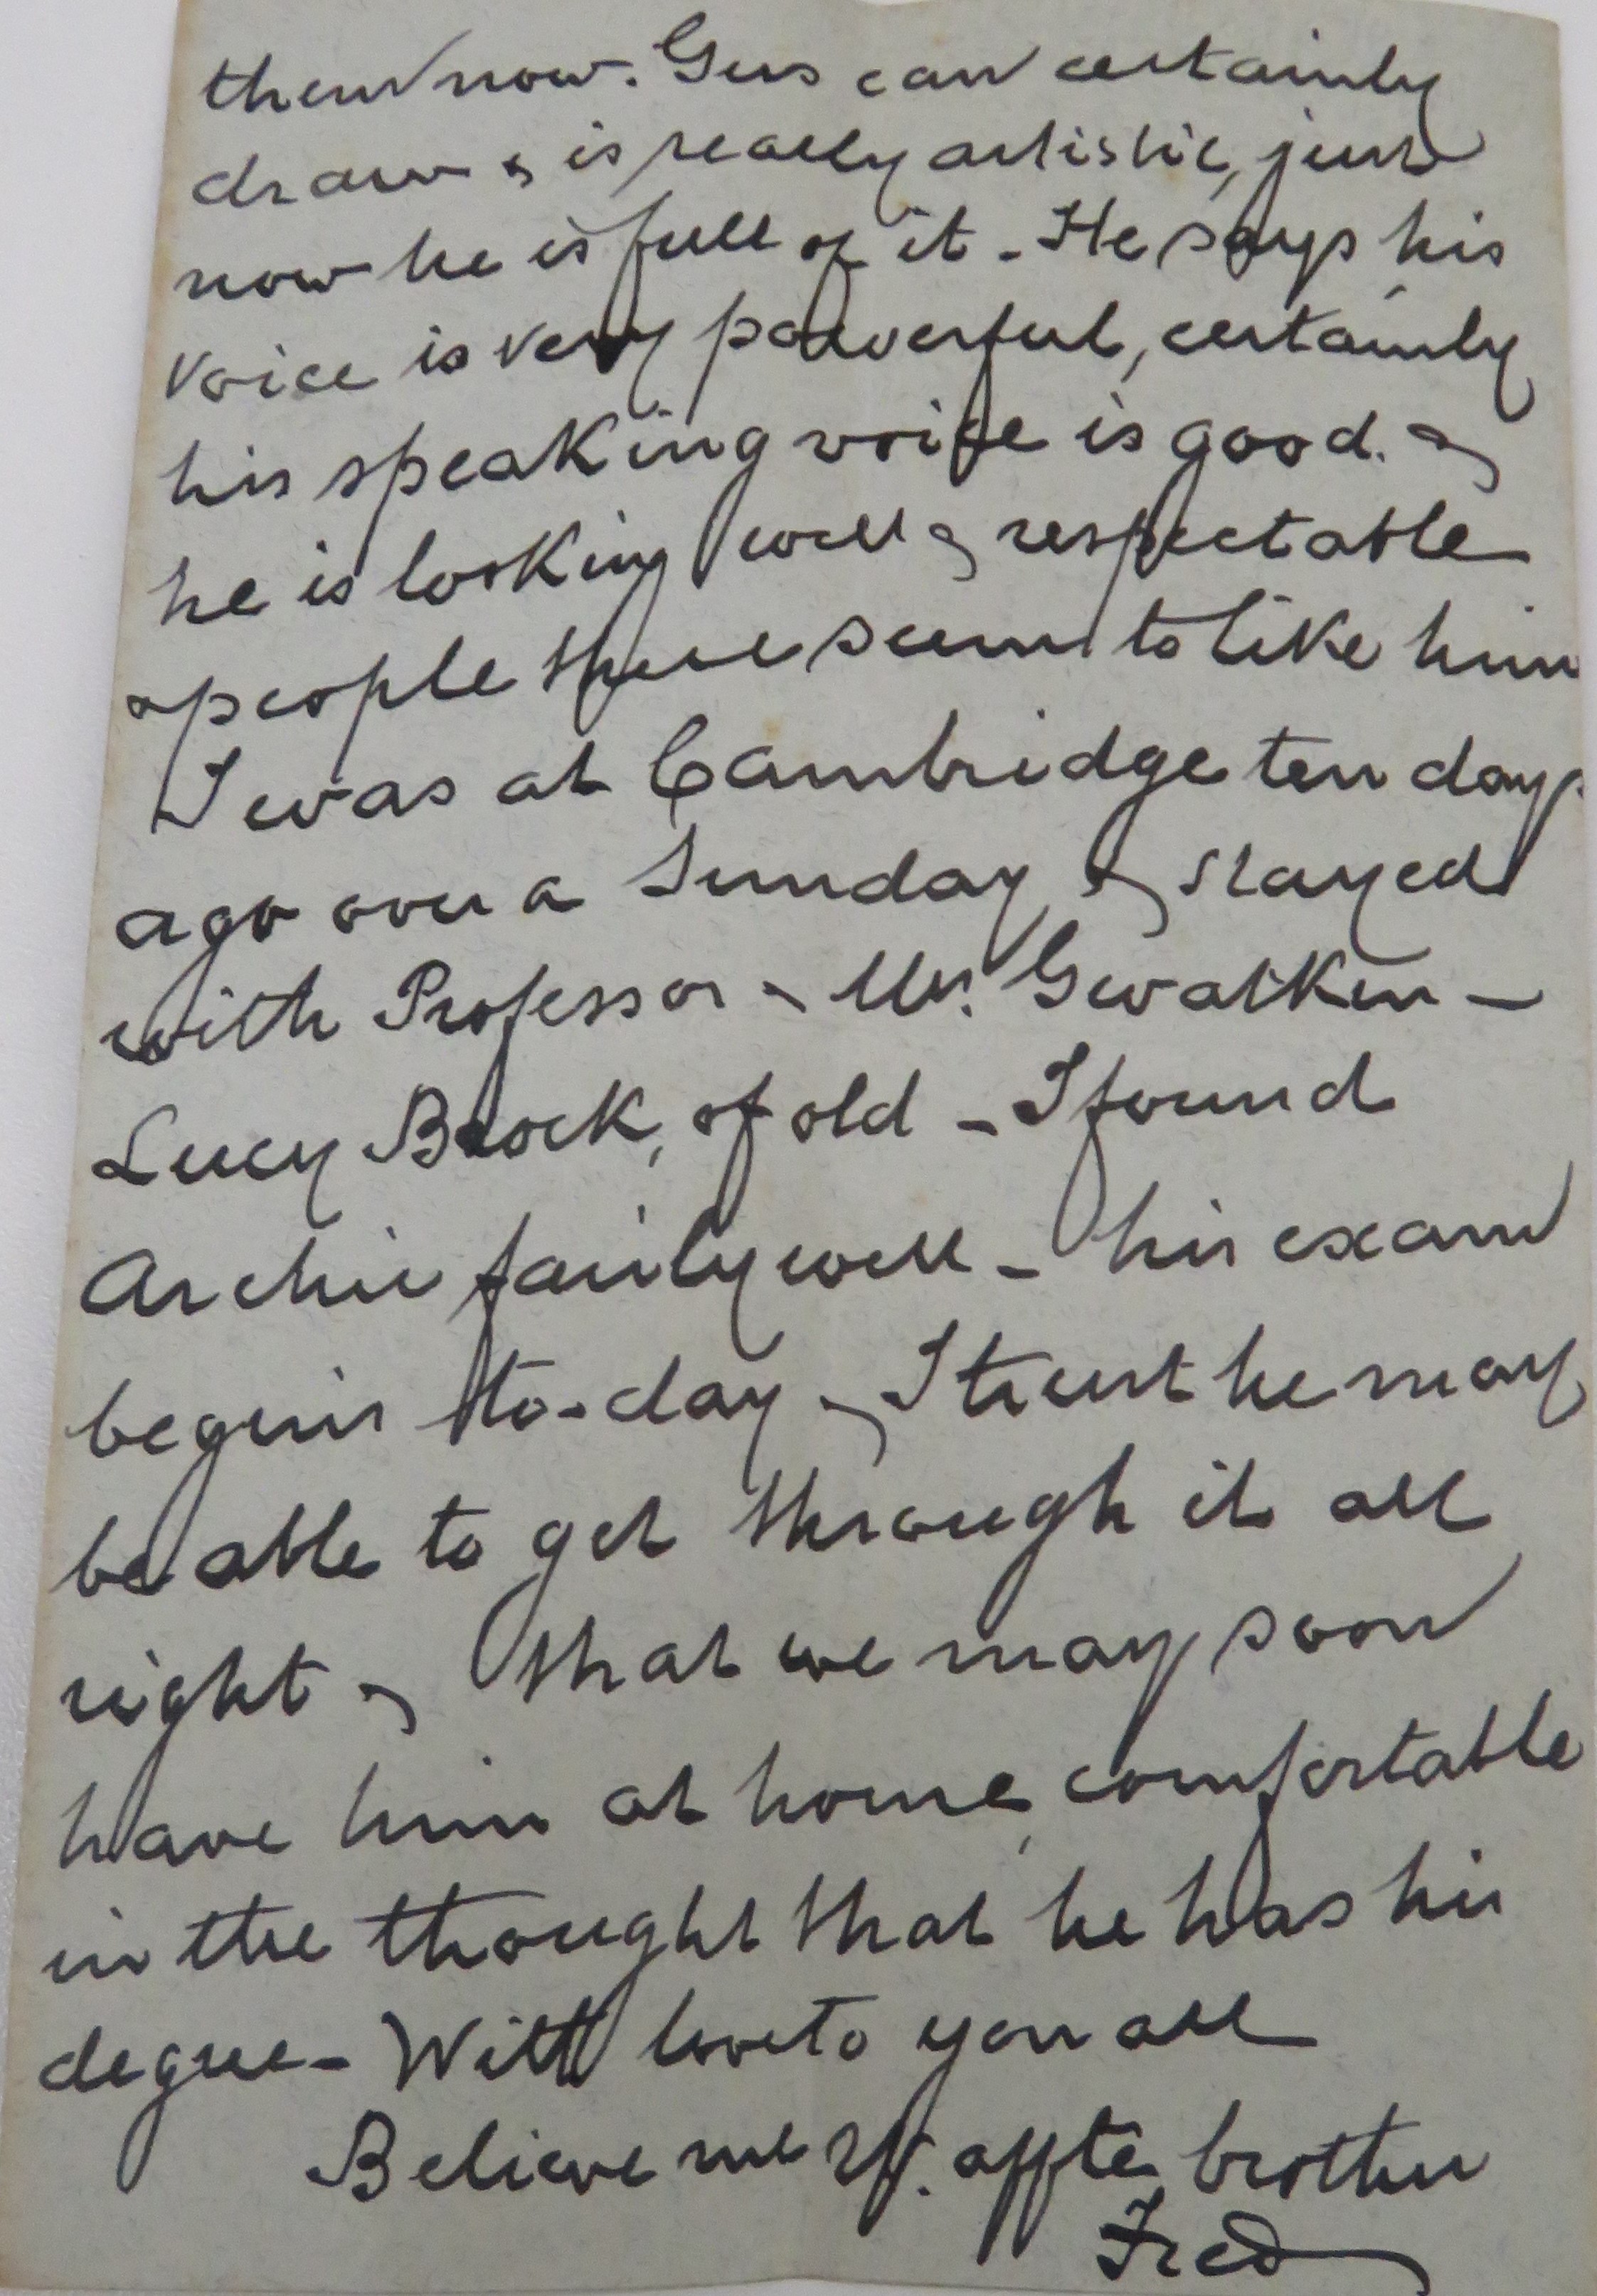 them now. Gus can certainly
draw & is really artistic, just
now he is full of it - He says his
voice is very powerful, certainly
his speaking voice is good. &
he is looking well & respectable
& people there seem to like him
I was at Cambridge ten days
ago over a Sunday & stayed
with Professor & Mrs. Gwatkin -
Lucy Brock, of old - I found
Archie fairly well - his exam
begins to-day & I trust he may
be able to get through it all
right & that we may soon
have him at home, comfortable
in the thought that he has his
degree - With love to you all
Believe me yr. affte brother
Fred